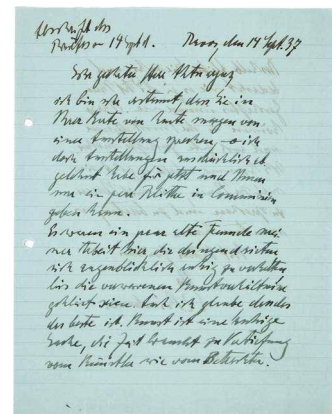 Abschrift des
Briefes vom 14 Sept. Davos, den 14 Sept. 37
Sehr geehrter Herr
ich bin sehr erstaunt, dass Sie in
Ihrer Karte von heute morgen von
einer Ausstellung sprechen, wo ich
doch Ausstellungen ausdrücklich ab
gelehnt habe für jetzt und Ihnen
nur ein paar Blätter in Commission
geben kann.
Es waren ein paar alte Freunde mei
ner Arbeit hier die dringend rieten
sich augenblicklich ruhig zu verhalten
bis die verworrenen Kunstverhältnisse
geklärt seien. Auch ich glaube dass das
das beste ist. Kunst ist eine ruhige
Sache, die Zeit braucht zur Vertiefung
vom Künstler wie vom Betrachter.